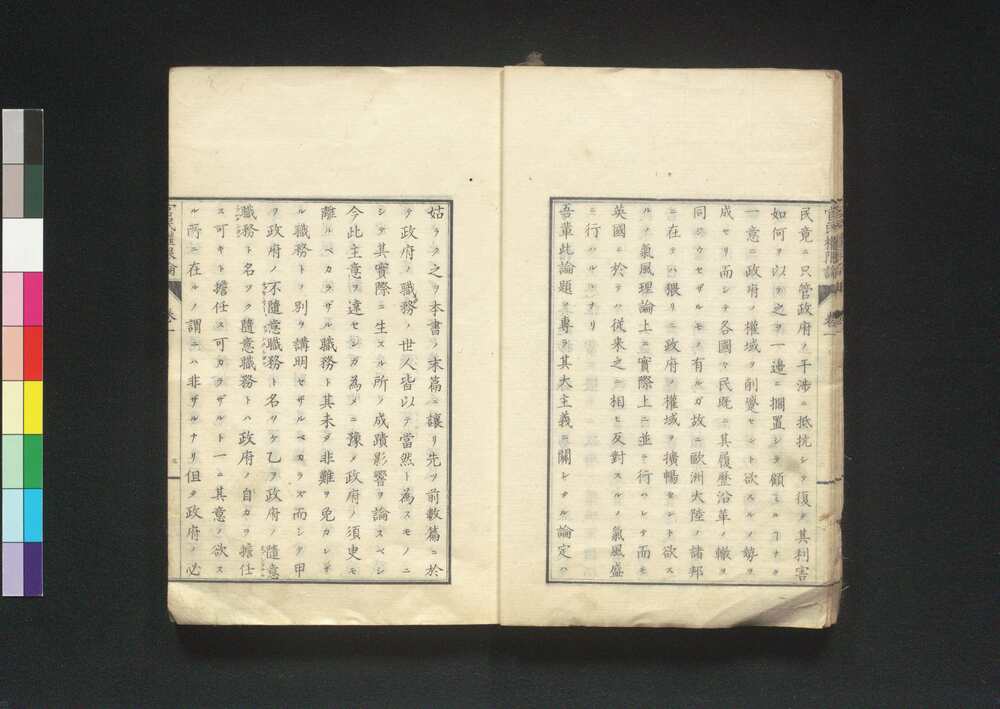 民竟ニ只管政府ノ干渉ニ抵抗シテ復タ其利害
如何ヲ以テ之ヲ一邉ニ擱置シテ顧ミルコナク
一意ニ政府ノ權域ヲ削蹙セント欲スルノ勢ヲ
成セリ而シテ各國ノ民既ニ其履歴沿革ノ轍ヲ
同ジウセザルモノ有ルガ故ニ歐洲大陸ノ諸邦
ニ在テハ猥リニ政府ノ權域ヲ擴暢セント欲ス
ルノ氣風理論上ニ實際上ニ並ヒ行ハレテ而モ
英國ニ於テハ從来之ニ相ヒ反對スルノ氣風盛
ニ行ハルヽナリ
吾輩此論題ヲ專ラ其大主義ニ關レタル論定ハ
官民權限論 卷一
姑ラク之ヲ本書ノ末篇ニ讓リ先ツ前數篇ニ於
テ政府ノ職務ノ世人皆以テ當然ト為スモノニ
シテ其實際ニ生スル所ノ成蹟影響ヲ論スベシ
今此主意ヲ達センガ為メニ豫メ政府ノ須臾モ
離ルベカラザル職務ト其未ダ非難ヲ免カレザ
ル職務トヲ別ヲ講明セザルベカラズ而シテ甲
ヲ政府ノ不隨意職務ト名ツケ乙ヲ政府ノ隨意
職務ト名ツク隨意職務トハ政府ノ自カラ擔任
ス可キト擔任ス可カラザル一ニ其意ノ欲ス
ル所ニ在ルノ謂ニハ非ザルナリ但タ政府ノ必
官民權限論 卷一